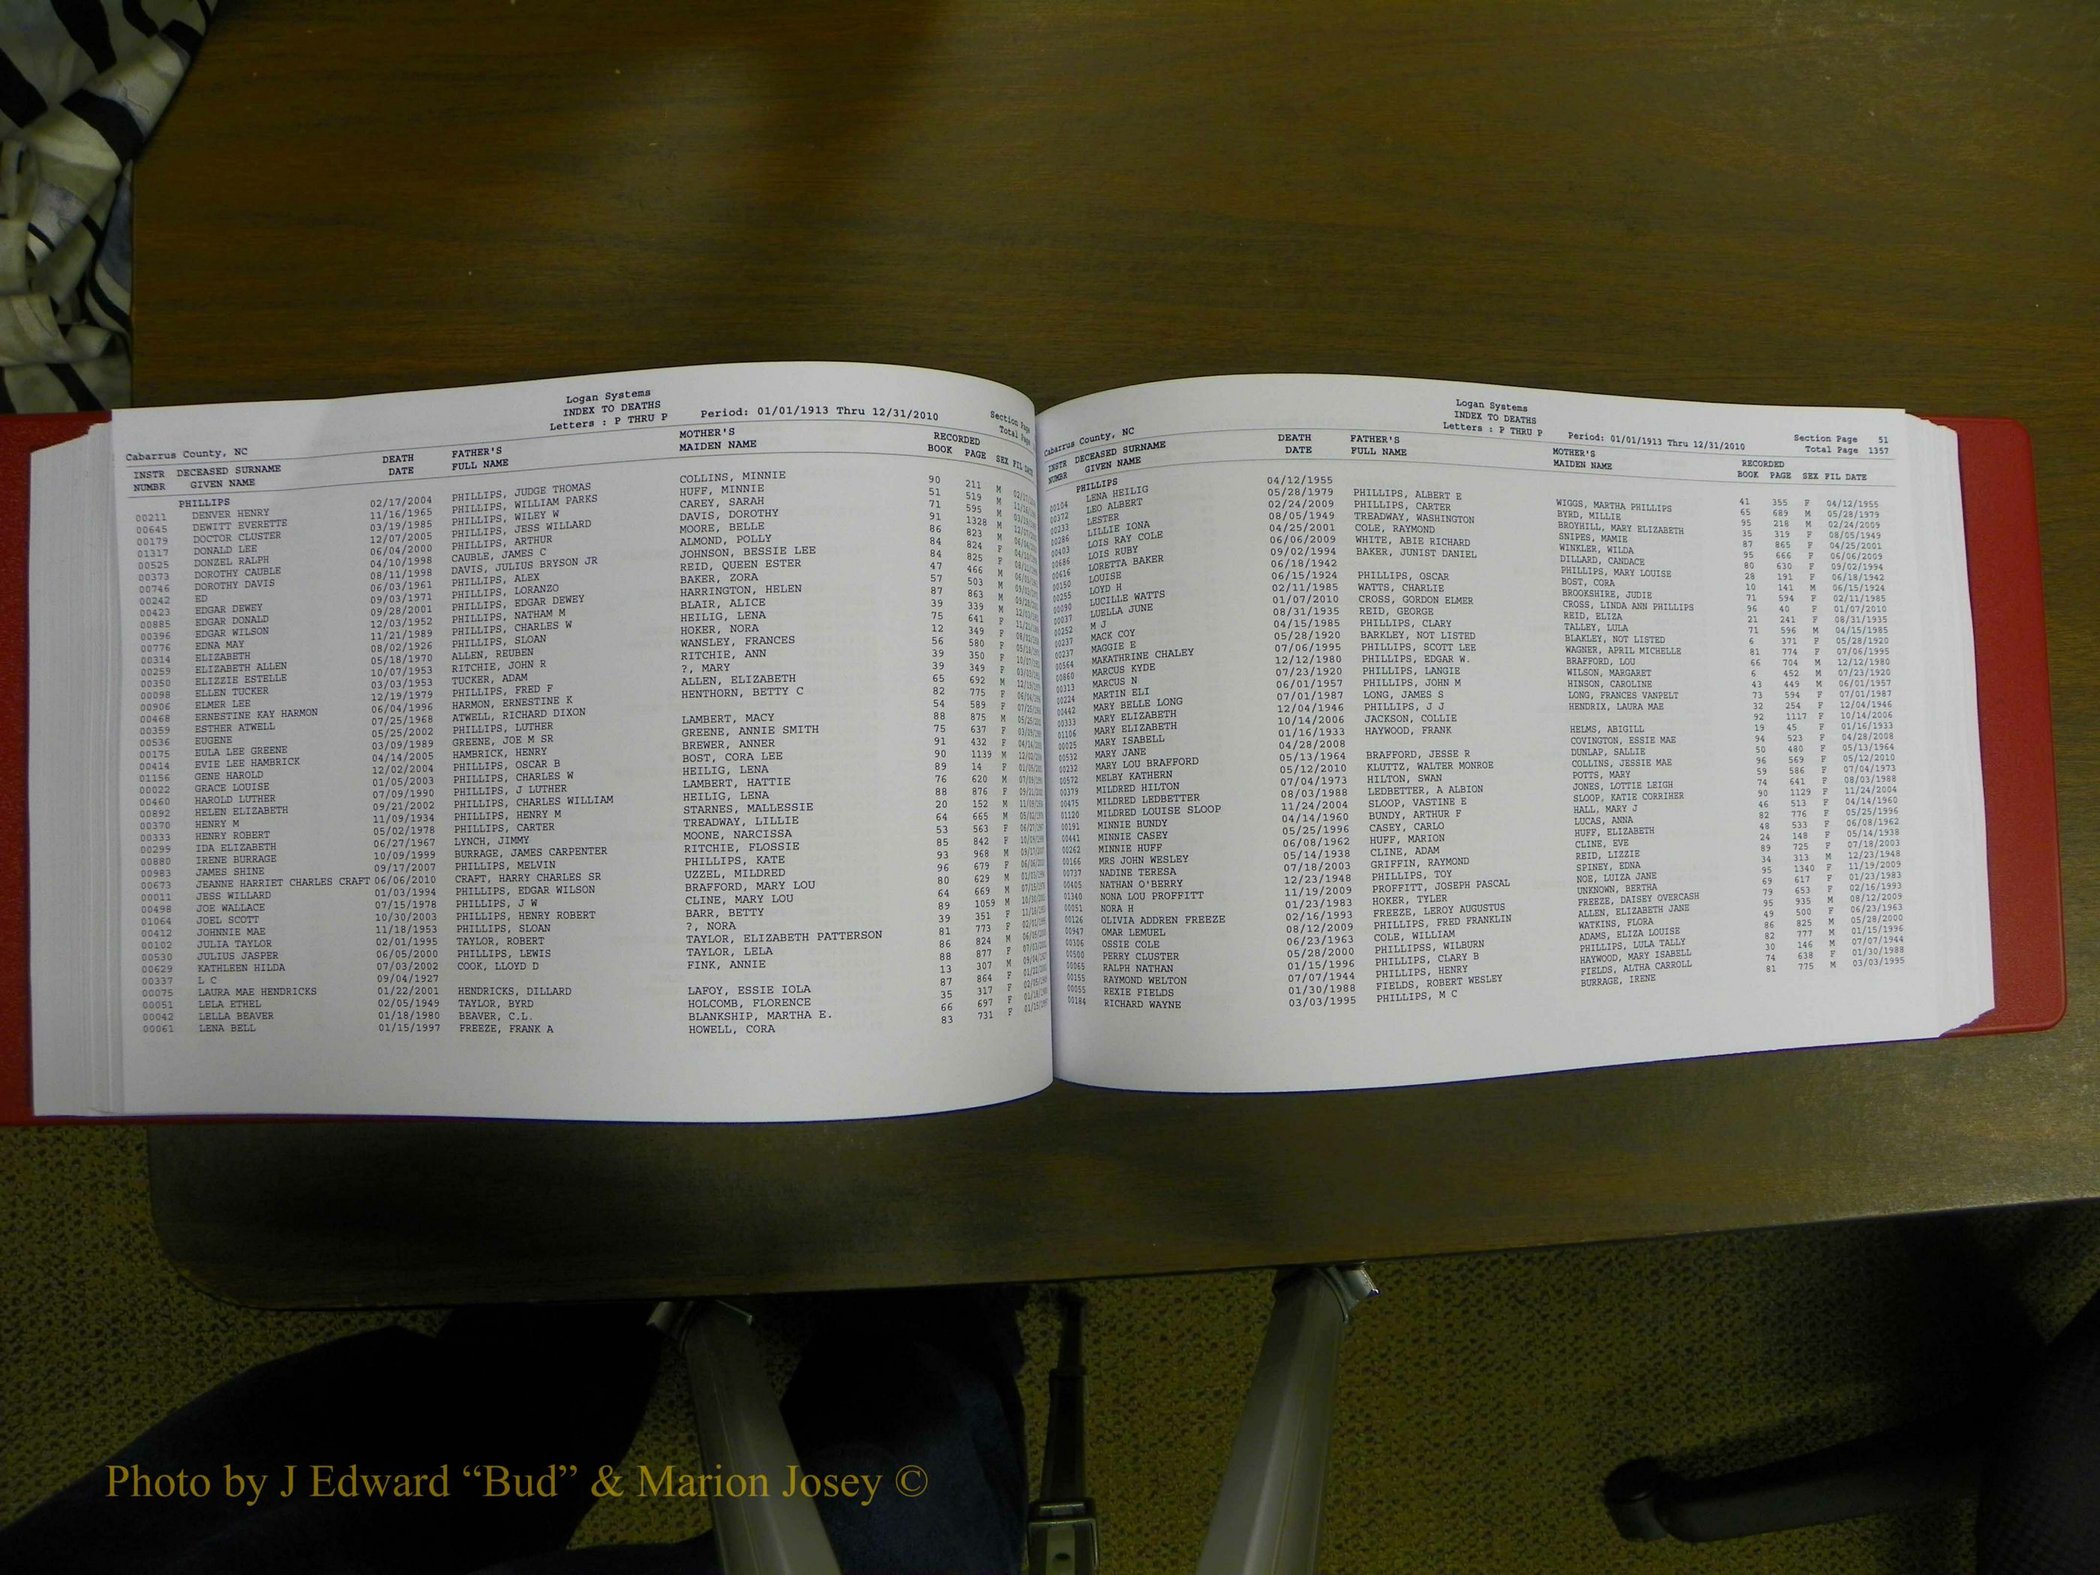 Logan Systems
INDEX TO DEATHS
Letters : P THRU P Period: 01/01/1913 Thru 12/31/2010
Section Page
Total Page
Cabarrus County, NC
INSTR DECEASED SURNAME DEATH FATHER'S MOTHER'S RECORDED
NUMBR GIVEN NAME DATE FULL NAME MAIDEN NAME BOOK PAGE SEX FIL DATE
PHILLIPS
00211 DENVER HENRY 02/17/2004 PHILLIPS, JUDGE THOMAS COLLINS, MINNIE 90 211 M
00645 DEWITT EVERETTE 11/16/1965 PHILLIPS, WILLIAM PARKS HUFF, MINNIE 51 519 M
00179 DOCTOR CLUSTER 03/19/1985 PHILLIPS, WILEY W CAREY, SARAH 71 595 M
01317 DONALD LEE 12/07/2005 PHILLIPS, JESS WILLARD DAVIS, DOROTHY 91 1328 M
00525 DONZEL RALPH 06/04/2000 PHILLIPS, ARTHUR MOORE, BELLE 86 823 M
00373 DOROTHY CAUBLE 04/10/1998 CAUBLE, JAMES C ALMOND, POLLY 84 824 F
00746 DOROTHY DAVIS 08/11/1998 DAVIS, JULIUS BRYSON JR JOHNSON, BESSIE LEE 84 825 F
00242 ED 06/03/1961 PHILLIPS, ALEX REID, QUEEN ESTER 47 466 M
00423 EDGAR DEWEY 09/03/1971 PHILLIPS, LORANZO BAKER, ZORA 57 503 M
00885 EDGAR DONALD 09/28/2001 PHILLIPS, EDGAR DEWEY HARRINGTON, HELEN 87 863 M
00396 EDGAR WILSON 12/03/1952 PHILLIPS, NATHAM M BLAIR, ALICE 39 339 M
00776 EDNA MAY 11/21/1989 PHILLIPS, CHARLES W HEILIG, LENA 75 641 F
00314 ELIZABETH 08/02/1926 PHILLIPS, SLOAN HOKER, NORA 12 349 F
00259 ELIZABETH ALLEN 05/18/1970 ALLEN, REUBEN WANSLEY, FRANCES 56 580 F
00350 ELIZZIE ESTELLE 10/07/1953 RITCHIE, JOHN R RITCHIE, ANN 39 350 F
00098 ELLEN TUCKER 03/03/1953 TUCKER, ADAM ?, MARY 39 349 F
00906 ELMER LEE 12/19/1979 PHILLIPS, FRED F ALLEN, ELIZABETH 65 692 M
00468 ERNESTINE KAY HARMON 06/04/1996 HARMON, ERNESTINE K HENTHORN, BETTY C 82 775 F
00359 ESTHER ATWELL 07/25/1968 ATWELL, RICHARD DIXON 54 589 F
00536 EUGENE 05/25/2002 PHILLIPS, LUTHER LAMBERT, MACY 88 875 M
00175 EULA LEE GREENE 03/09/1989 GREENE, JOE M SR GREENE, ANNIE SMITH 75 637 F
00414 EVIE LEE HAMBRICK 04/14/2005 HAMBRICK, HENRY BREWER, ANNER 91 432 F
01156 GENE HAROLD 12/02/2004 PHILLIPS, OSCAR B BOST, CORA LEE 90 1139 M
00022 GRACE LOUISE 01/05/2003 PHILLIPS, CHARLES W HEILIG, LENA 89 14 F
00460 HAROLD LUTHER 07/09/1990 PHILLIPS, J LUTHER LAMBERT, HATTIE 76 620 M
00892 HELEN ELIZABETH 09/21/2002 PHILLIPS, CHARLES WILLIAM HEILIG, LENA 88 876 F
00370 HENRY M 11/09/1934 PHILLIPS, HENRY M STARNES, MALLESSIE 20 152 M
00333 HENRY ROBERT 05/02/1978 PHILLIPS, CARTER TREADWAY, LILLIE 64 665 M
00299 IDA ELIZABETH 06/27/1967 LYNCH, JIMMY MOONE, NARCISSA 53 563 F
00880 IRENE BURRAGE 10/09/1999 BURRAGE, JAMES CARPENTER RITCHIE, FLOSSIE 85 842 F
00983 JAMES SHINE 09/17/2007 PHILLIPS, MELVIN PHILLIPS, KATE 93 968 M
00673 JEANNE HARRIET CHARLES CRAFT 06/06/2010 CRAFT, HARRY CHARLES SR UZZEL, MILDRED 96 679 F
00011 JESS WILLARD 01/03/1994 PHILLIPS, EDGAR WILSON BRAFFORD, MARY LOU 80 629 M
00498 JOE WALLACE 07/15/1978 PHILLIPS, J W CLINE, MARY LOU 64 669 M
01064 JOEL SCOTT 10/30/2003 PHILLIPS, HENRY ROBERT BARR, BETTY 89 1059 M
00412 JOHNNIE MAE 11/18/1953 PHILLIPS, SLOAN ?, NORA 39 351 F
00102 JULIA TAYLOR 02/01/1995 TAYLOR, ROBERT TAYLOR, ELIZABETH PATTERSON 81 773 F
00530 JULIUS JASPER 06/05/2000 PHILLIPS, LEWIS TAYLOR, LELA 86 824 M
00629 KATHLEEN HILDA 07/03/2002 COOK, LLOYD D FINK, ANNIE 88 877 F
00337 L C 09/04/1927 13 307 M
00075 LAURA MAE HENDRICKS 01/22/2001 HENDRICKS, DILLARD LAFOY, ESSIE IOLA 87 864 F
00051 LELA ETHEL 02/05/1949 TAYLOR, BYRD HOLCOMB, FLORENCE 35 317 F
00042 LELLA BEAVER 01/18/1980 BEAVER, C.L. BLANKSHIP, MARTHA E. 66 697 F
00061 LENA BELL 01/15/1997 FREEZE, FRANK A HOWELL, CORA 83 731 F
Logan Systems
INDEX TO DEATHS
Letters : P THRU P Period: 01/01/1913 Thru 12/31/2010
Section Page 51
Total Page 1357
Cabarrus County, NC
INSTR DECEASED SURNAME DEATH FATHER'S MOTHER'S RECORDED
NUMBR GIVEN NAME DATE FULL NAME MAIDEN NAME BOOK PAGE SEX FIL DATE
PHILLIPS
00104 LENA HEILIG 04/12/1955 41 355 F 04/12/1955
00372 LEO ALBERT 05/28/1979 PHILLIPS, ALBERT E WIGGS, MARTHA PHILLIPS 65 689 M 05/28/1979
00233 LESTER 02/24/2009 PHILLIPS, CARTER BYRD, MILLIE 95 218 M 02/24/2009
00286 LILLIE IONA 08/05/1949 TREADWAY, WASHINGTON BROYHILL, MARY ELIZABETH 35 319 F 08/05/1949
00403 LOIS RAY COLE 04/25/2001 COLE, RAYMOND SNIPES, MAMIE 87 865 F 04/25/2001
00686 LOIS RUBY 06/06/2009 WHITE, ABIE RICHARD WINKLER, WILDA 95 666 F 06/06/2009
00616 LORETTA BAKER 09/02/1994 BAKER, JUNIST DANIEL DILLARD, CANDACE 80 630 F 09/02/1994
00150 LOUISE 06/18/1942 PHILLIPS, MARY LOUISE 28 191 F 06/18/1942
00255 LOYD H 06/15/1924 PHILLIPS, OSCAR BOST, CORA 10 141 M 06/15/1924
00090 LUCILLE WATTS 02/11/1985 WATTS, CHARLIE BROOKSHIRE, JUDIE 71 594 F 02/11/1985
00037 LUELLA JUNE 01/07/2010 CROSS, GORDON ELMER CROSS, LINDA ANN PHILLIPS 96 40 F 01/07/2010
00252 M J 08/31/1935 REID, GEORGE REID, ELIZA 21 241 F 08/31/1935
00237 MACK COY 04/15/1985 PHILLIPS, CLARY TALLEY, LULA 71 596 M 04/15/1985
00237 MAGGIE E 05/28/1920 BARKLEY, NOT LISTED BLAKLEY, NOT LISTED 6 371 F 05/28/1920
00564 MAKATHRINE CHALEY 07/06/1995 PHILLIPS, SCOTT LEE WAGNER, APRIL MICHELLE 81 774 F 07/06/1995
00860 MARCUS KYDE 12/12/1980 PHILLIPS, EDGAR W. BRAFFORD, LOU 66 704 M 12/12/1980
00313 MARCUS N 07/23/1920 PHILLIPS, LANGIE WILSON, MARGARET 6 452 M 07/23/1920
00224 MARTIN ELI 06/01/1957 PHILLIPS, JOHN M HINSON, CAROLINE 43 449 M 06/01/1957
00442 MARY BELLE LONG 07/01/1987 LONG, JAMES S LONG, FRANCES VANPELT 73 594 F 07/01/1987
00333 MARY ELIZABETH 12/04/1946 PHILLIPS, J J HENDRIX, LAURA MAE 32 254 F 12/04/1946
01106 MARY ELIZABETH 10/14/2006 JACKSON, COLLIE 92 1117 F 10/14/2006
00025 MARY ISABELL 01/16/1933 HAYWOOD, FRANK HELMS, ABIGILL 19 45 F 01/16/1933
00532 MARY JANE 04/28/2008 COVINGTON, ESSIE MAE 94 523 F 04/28/2008
00232 MARY LOU BRAFFORD 05/13/1964 BRAFFORD, JESSE R DUNLAP, SALLIE 50 480 F 05/13/1964
00572 MELBY KATHERN 05/12/2010 KLUTTZ, WALTER MONROE COLLINS, JESSIE MAE 96 569 F 05/12/2010
00379 MILDRED HILTON 07/04/1973 HILTON, SWAN POTTS, MARY 59 586 F 07/04/1973
00475 MILDRED LEDBETTER 08/03/1988 LEDBETTER, A ALBION JONES, LOTTIE LEIGH 74 641 F 08/03/1988
01120 MILDRED LOUISE SLOOP 11/24/2004 SLOOP, VASTINE E SLOOP, KATIE CORRIHER 90 1129 F 11/24/2004
00191 MINNIE BUNDY 04/14/1960 BUNDY, ARTHUR F HALL, MARY J 46 513 F 04/14/1960
00441 MINNIE CASEY 05/25/1996 CASEY, CARLO LUCAS, ANNA 82 776 F 05/25/1996
00262 MINNIE HUFF 06/08/1962 HUFF, MARION HUFF, ELIZABETH 48 533 F 06/08/1962
00166 MRS JOHN WESLEY 05/14/1938 CLINE, ADAM CLINE, EVE 24 148 F 05/14/1938
00737 NADINE TERESA 07/18/2003 GRIFFIN, RAYMOND REID, LIZZIE 89 725 F 07/18/2003
00405 NATHAN O'BERRY 12/23/1948 PHILLIPS, TOY SPINEY, EDNA 34 313 M 12/23/1948
01340 NONA LOU PROFFITT 11/19/2009 PROFFITT, JOSEPH PASCAL NOE, LUIZA JANE 95 1340 F 11/19/2009
00051 NORA H 01/23/1983 HOKER, TYLER UNKNOWN, BERTHA 69 617 F 01/23/1983
00126 OLIVIA ADDREN FREEZE 02/16/1993 FREEZE, LEROY AUGUSTUS FREEZE, DAISEY OVERCASH 79 653 F 02/16/1993
00947 OMAR LEMUEL 08/12/2009 PHILLIPS, FRED FRANKLIN ALLEN, ELIZABETH JANE 95 935 M 08/12/2009
00306 OSSIE COLE 06/23/1963 COLE, WILLIAM WATKINS, FLORA 49 500 F 06/23/1963
00500 PERRY CLUSTER 05/28/2000 PHILLIPSS, WILBURN ADAMS, ELIZA LOUISE 86 825 M 05/28/2000
00065 RALPH NATHAN 01/15/1996 PHILLIPS, CLARY B PHILLIPS, LULA TALLY 82 777 M 01/15/1996
00155 RAYMOND WELTON 07/07/1944 PHILLIPS, HENRY HAYWOOD, MARY ISABELL 30 146 M 07/07/1944
00055 REXIE FIELDS 01/30/1988 FIELDS, ROBERT WESLEY FIELDS, ALTHA CARROLL 74 638 F 01/30/1988
00184 RICHARD WAYNE 03/03/1995 PHILLIPS, M C BURRAGE, IRENE 81 775 M 03/03/1995
Photo by J Edward “Bud” & Marion Josey ©